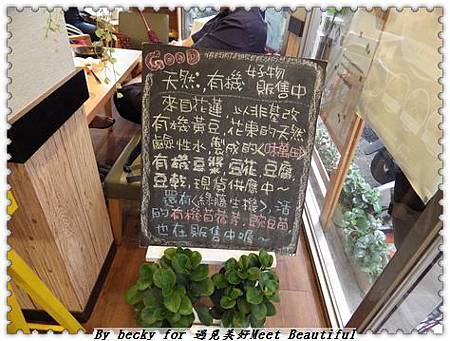 GOOD 好物
天然,有機 販售中
來自花蓮 以非基改
有機黃豆,花東的天然
鹼性水,製成的<味萬田>
有機豆漿、豆花、豆腐
豆乾,現貨供應中~
還有<綠藤生機>,活
的有機苜蓿芽、豌豆苗
也在販售中喔~
By becky for 遇見美好Meet Beautiful